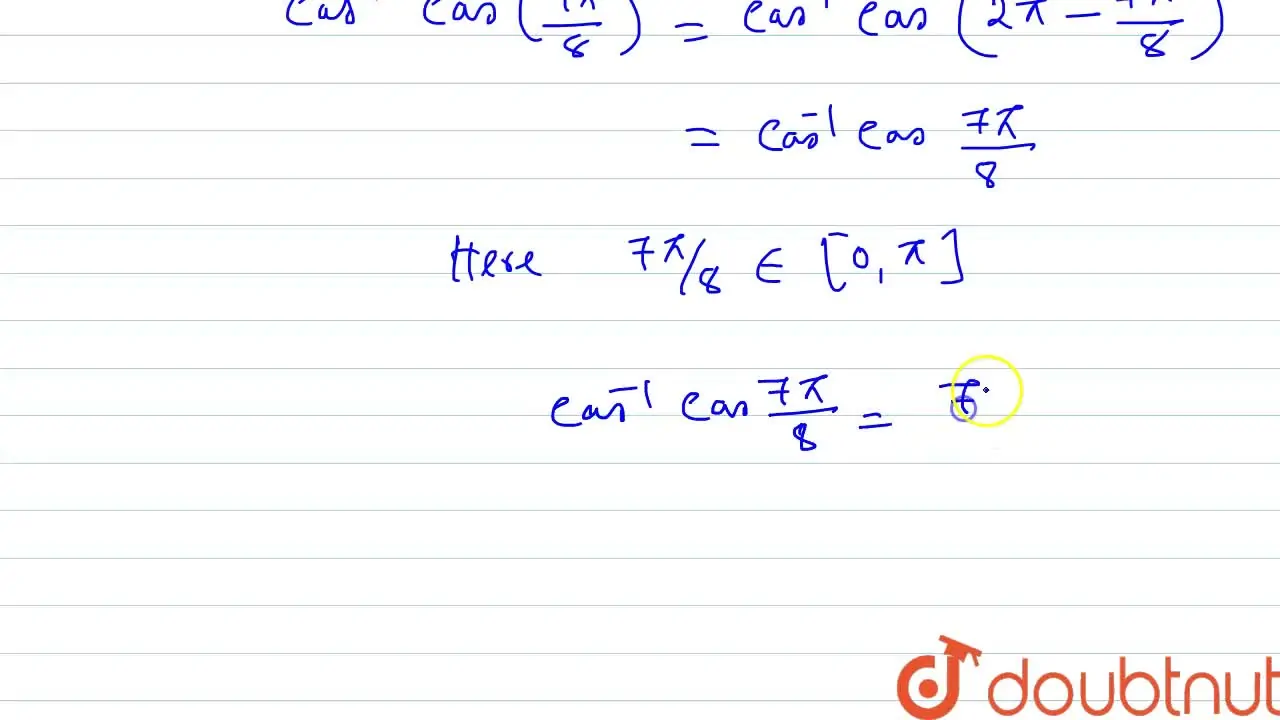 cos⁻¹ cos (7π/8) = cos⁻¹ cos (2π − 7π/8)
= cos⁻¹ cos 7π/8
Here 7π/8 ∈ [0, π]
cos⁻¹ cos 7π/8 = 7
doubtnut